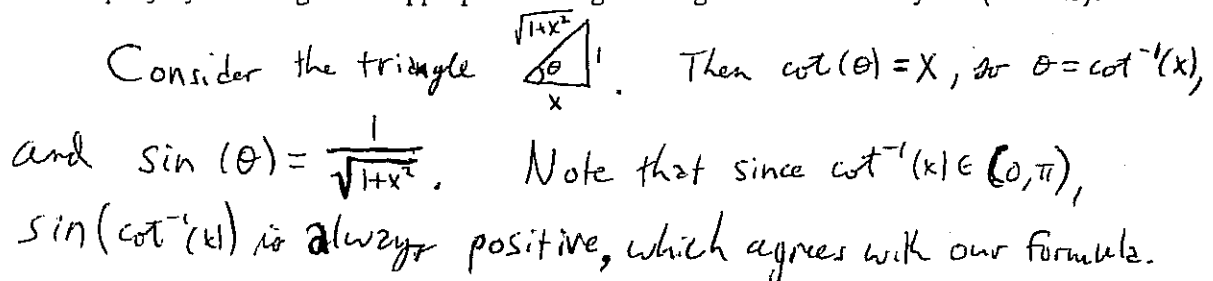 Consider the triangle √1+x² θ 1 x . Then cot(θ) = x, so θ = cot⁻¹(x),
and sin(θ) = 1/√1+x² . Note that since cot⁻¹(x) ∈ (0,π),
sin(cot⁻¹(x)) is always positive, which agrees with our formula.